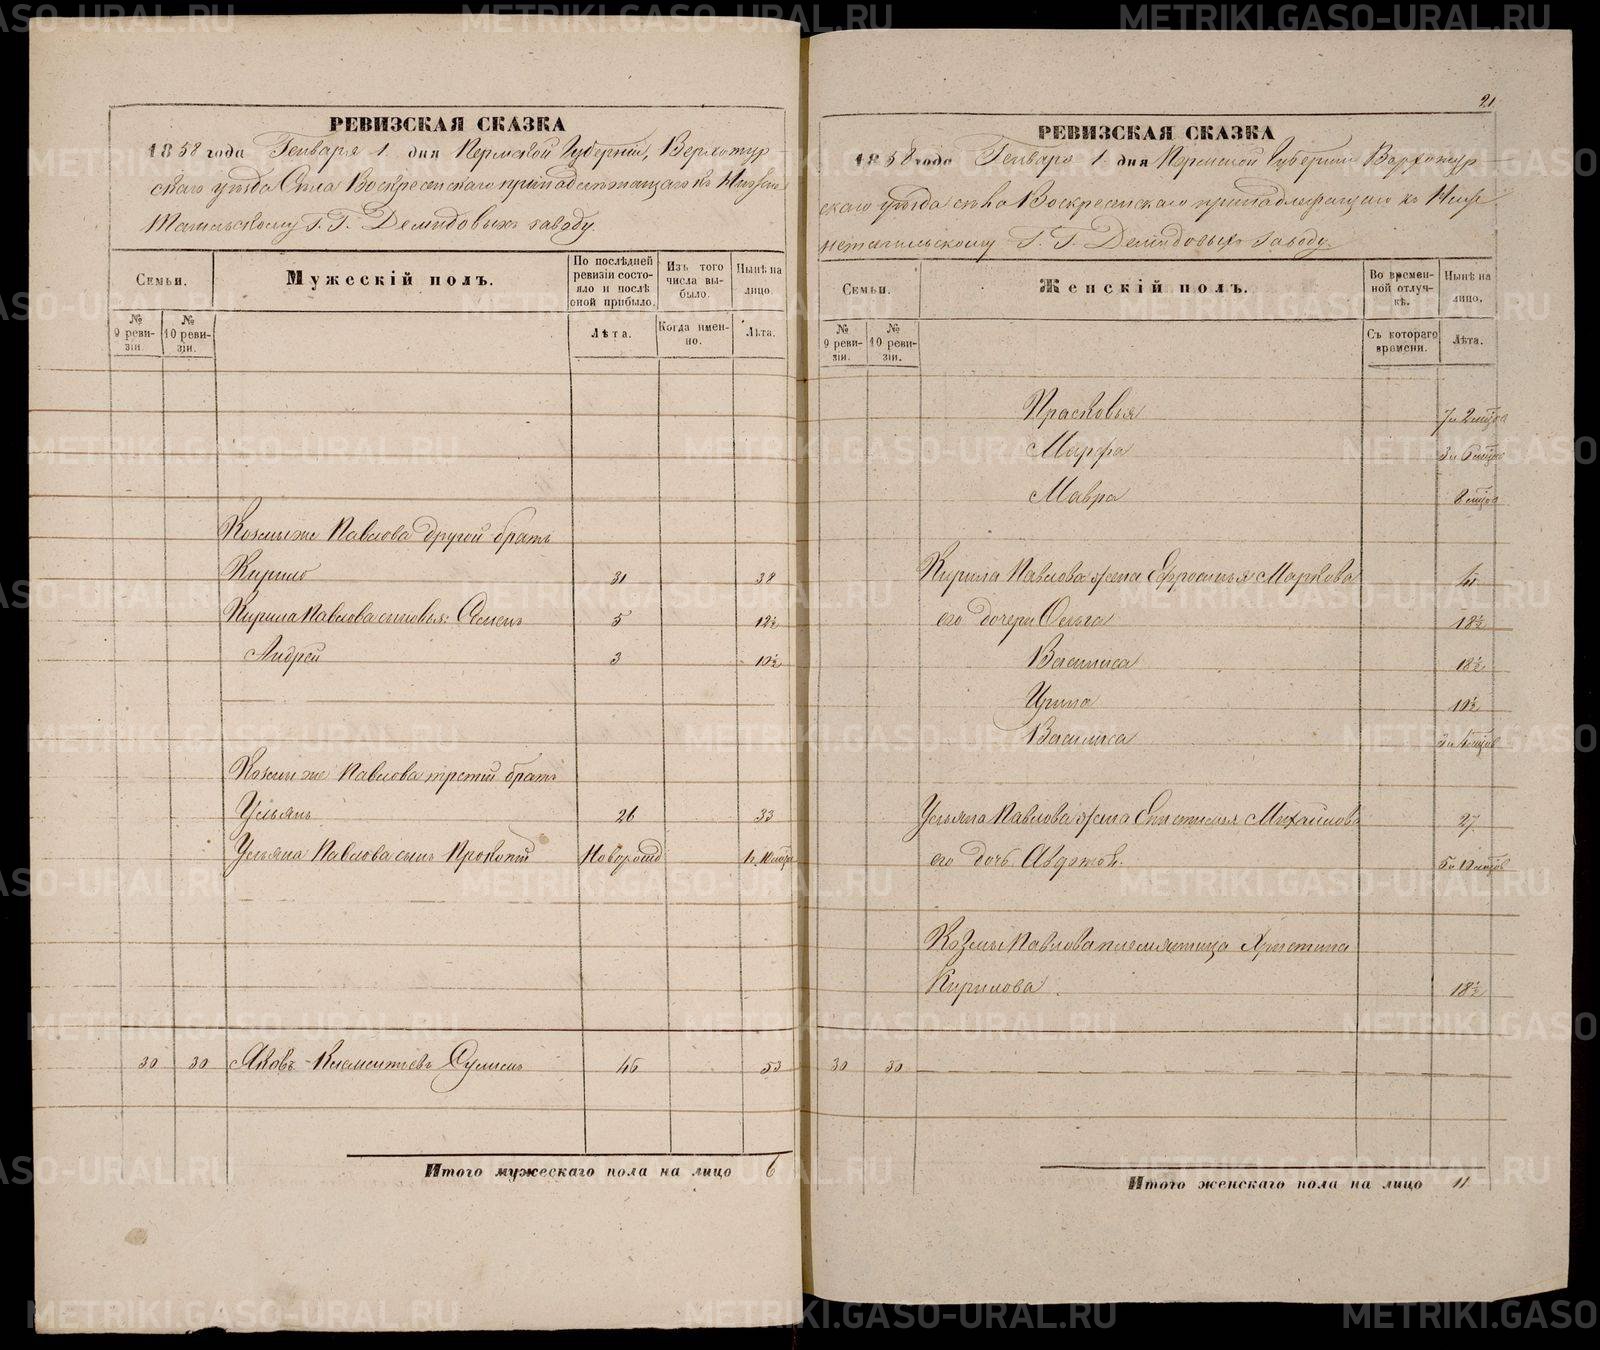 РЕВИЗСКАЯ СКАЗКА
1858 года Генваря 1 дня Пермской Губернии, Верхотур
скаго уезда Села Воскресенскаго принадлежащаго къ Нижне
Тагильскому Г.Г. Демидовыхъ заводу.
Семьи.
№ 9 ревизіи.
№ 10 ревизіи.
Мужескій полъ.
По послѣдней ревизіи состояло и послѣ оной прибыло.
Лѣта.
Изъ того числа выбыло.
Когда именно.
Нынѣ на лицо.
Лѣта.
Козмы же Павлова другой братъ
Кирило 31 38
Кирила Павлова сыновья: Семенъ 5 12½
Андрей 3 10½
Козмы же Павлова третій братъ
Ульянъ 26 33
Ульяна Павлова сынъ Прокопій Новорожд
30 30 Яковъ Климентьевъ Сулинъ 46 53
Итого мужескаго пола на лицо 6
21
РЕВИЗСКАЯ СКАЗКА
1858 года Генваря 1 дня Пермской Губернии Верхотур
скаго уезда села Воскресенскаго принадлежащаго къ Ниж
нетагильскому Г.Г. Демидовыхъ заводу.
Семьи.
№ 9 ревизіи.
№ 10 ревизіи.
Женскій полъ.
Во временной отлучкѣ.
Съ котораго времени.
Нынѣ на лицо.
Лѣта.
Прасковья 7 и 2 мцов
Марфа 3 и 6 мцов
Мавра 8 мцов
Кирила Павлова жена Ефросинья Маркова
его дочери Ольга 18½
Василиса 18½
Ирина 10½
Василиса
Ульяна Павлова жена Епистинья Михайлов 27
его дочь Авдотья.
Козмы Павлова племянница Христина
Кирилова 18½
30 30
Итого женскаго пола на лицо 11
METRIKI.GASO-URAL.RU